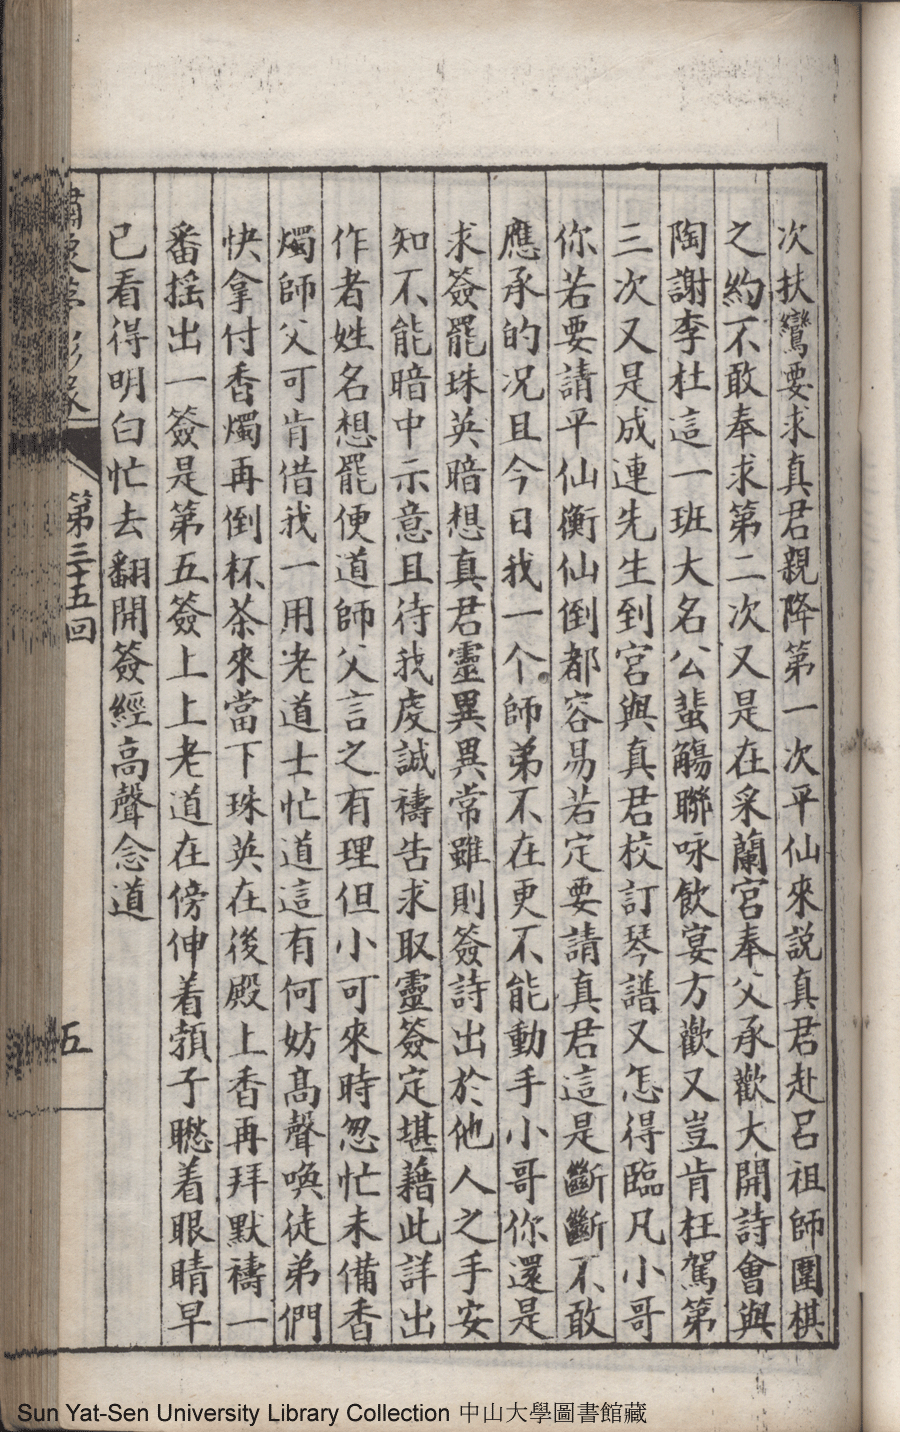 次扶鸞要求真君親降第一次平仙來説真君赴呂祖師圍棋
之約不敢奉求第二次又是在采蘭宮奉父承歡大開詩會與
陶謝李杜這一班大名公蜚觴聯咏飲宴方歡又豈肯枉駕第
三次又是成連先生到宮與真君校訂琴譜又怎得臨凡小哥
你若要請平仙衡仙倒都容易若定要請真君這是斷斷不敢
應承的况且今日我一个師弟不在更不能動手小哥你還是
求簽罷珠英暗想真君靈異異常雖則簽詩出於他人之手安
知不能暗中示意且待我虔誠禱告求取靈簽定堪藉此詳出
作者姓名想罷便道師父言之有理但小可來時怱忙未備香
燭師父可肯借我一用老道士忙道這有何妨髙聲喚徒弟們
快拿付香燭再倒杯茶來當下珠英在後殿上香再拜默禱一
番摇出一簽是第五簽上上老道在傍伸着頚子矁着眼睛早
已看得明白忙去翻開簽經高聲念道
第三十五回
五
Sun Yat-Sen University Library Collection 中山大學圖書館藏